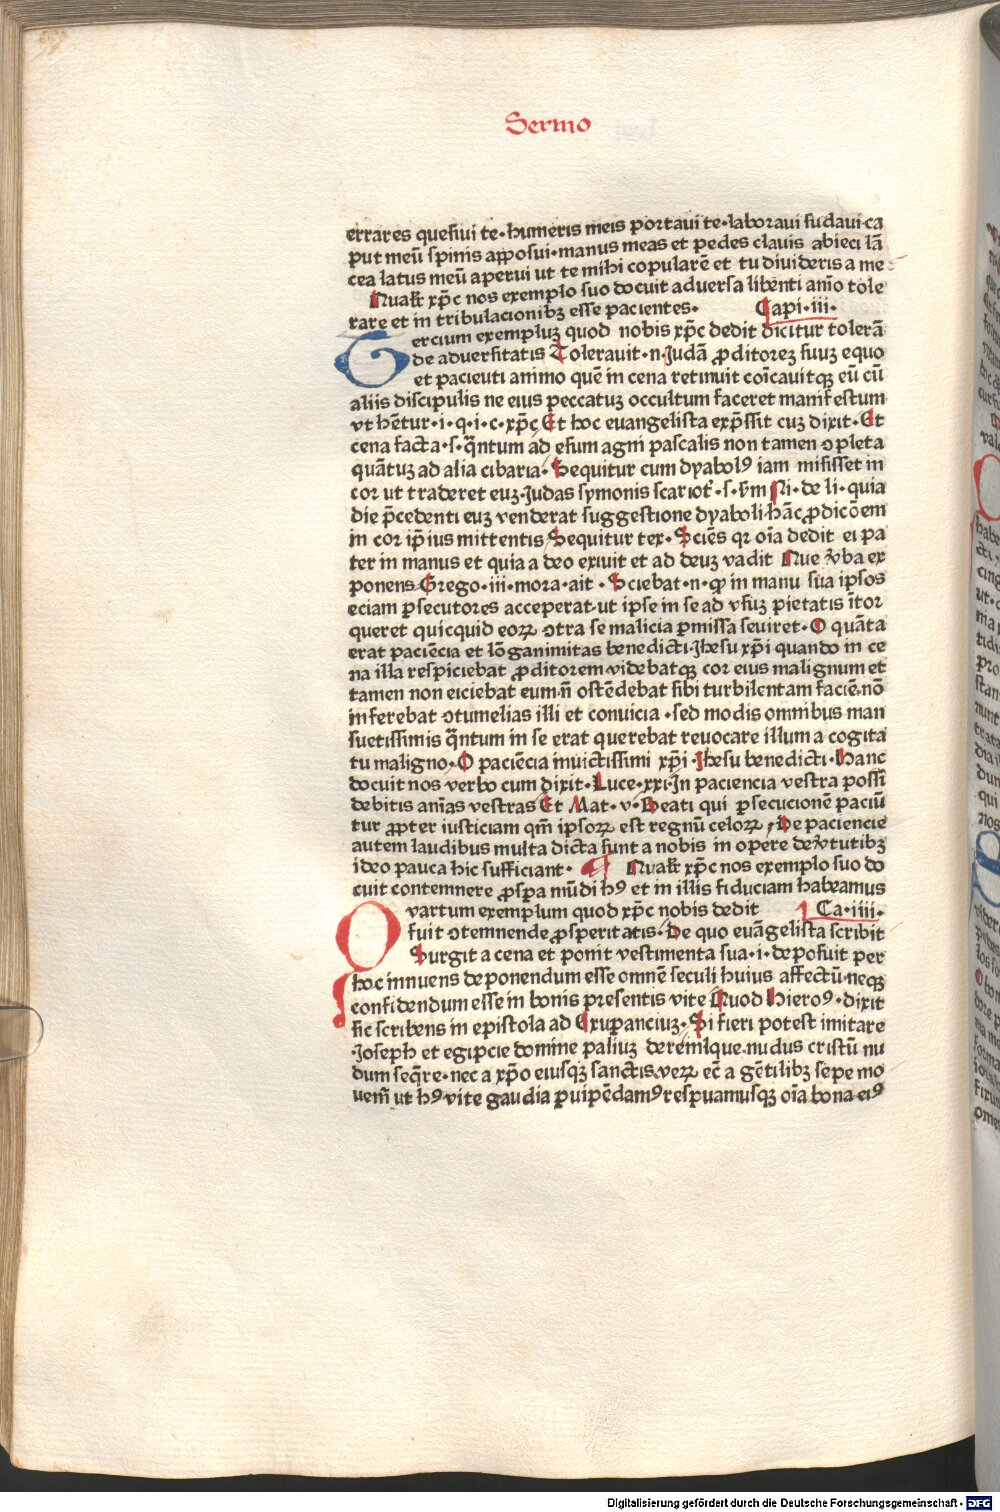 Sermo
errares quesiui te·humeris meis portaui te·laboraui sudaui·ca
put meū spinis apposui·manus meas et pedes clauis abieci lā
cea latus meū aperui ut te mihi copularē et tu diuideris a me
Qualr xp̄c nos exemplo suo docuit aduersa libenti anīo tole
rare et in tribulacionibꝫ esse pacientes· Capi·iii·
Tercium exempluꝫ quod nobis xp̄c dedit dicitur tolerā
de aduersitatis Tolerauit·n·Judā ꝓditoreꝫ suuꝫ equo
et pacieuti animo quē in cena retinuit coīcauitqꝫ eū cū
aliis discipulis ne eius peccatuꝫ occultum faceret manifestum
vt hētur·i·q·i·c·xp̄c Et hoc euangelista exp̄ssit cuꝫ dixit·Et
cena facta·s·q̄ntum ad esum agni pascalis non tamen ↄpleta
quātuꝫ ad alia cibaria·Sequitur cum dyabolꝰ iam misisset in
cor ut traderet euꝫ·Judas symonis scariot̄·s·ẜm Ni·de li·quia
die p̄cedenti euꝫ venderat suggestione dyaboli·hāc ꝓdicōem
in cor ip̄ius mittentis Sequitur tex·Sciēs qr oīa dedit ei pa
ter in manus et quia a deo exiuit et ad deuꝫ vadit Que v̄ba ex
ponens Grego·iii·mora·ait·Sciebat·n·ꝙ in manu sua ipsos
eciam ꝑsecutores acceperat·ut ipse in se ad vsuꝫ pietatis ītor
queret quicquid eoꝝ ↄtra se malicia ꝑmissa seuiret·O quāta
erat paciēcia et lōganimitas benedicti·Jhesu xp̄i quando in ce
na illa respiciebat ꝓditorem videbatqꝫ cor eius malignum et
tamen non eiciebat eum·n̄ ostēdebat sibi turbilentam faciē·nō
inferebat ↄtumelias illi et conuicia·sed modis omnibus man
suetissimis q̄ntum in se erat querebat reuocare illum a cogita
tu maligno·O paciēcia inuictissimi xp̄i·Jhesu benedicti·Hanc
docuit nos verbo cum dixit·Luce·xxi·In paciencia vestra possi
debitis anīas vestras Et Mat·v·Beati qui ꝑsecucionē paciū
tur ꝓpter iusticiam qm̄ ipsoꝝ est regnū celoꝝ·De paciencie
autem laudibus multa dicta sunt a nobis in opere de v̄tutibꝫ
ideo pauca hic sufficiant· ¶ Qualr xp̄c nos exemplo suo do
cuit contemnere ꝓspa mūdi hꝰ et in illis fiduciam habeamus
Quartum exemplum quod xp̄c nobis dedit Ca·iiii·
fuit ↄtemnende ꝓsperitatis·De quo euāgelista scribit
Surgit a cena et ponit vestimenta sua·i·deposuit per
hoc innuens deponendum esse omnē seculi huius affectū·neqꝫ
confidendum esse in bonis presentis vite Quod Hieroꝰ·dixit
sic scribens in epistola ad Exupanciuꝫ·Si fieri potest imitare
·Joseph et egipcie domine paliuꝫ derelīque·nudus cristū nu
dum seq̄re·nec a xp̄o eiusqꝫ sanctis·veꝝ ec̄ a gētilibꝫ sepe mo
uem̄ ut hꝰ vite gaudia ꝑuipēdamꝰ respuamusqꝫ oīa bona eiꝰ
Digitalisierung gefördert durch die Deutsche Forschungsgemeinschaft - DFG